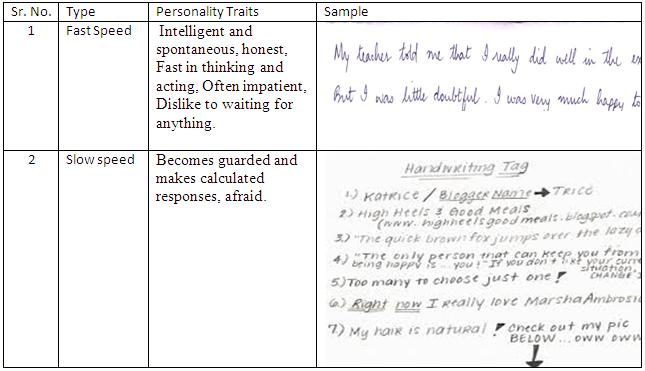 Sr. No. Type Personality Traits Sample
1 Fast Speed Intelligent and
spontaneous, honest,
Fast in thinking and
acting, Often impatient,
Dislike to waiting for
anything.
My teacher told me that I really did well in the
But I was little doubtful. I was very much happy to
2 Slow speed Becomes guarded and
makes calculated
responses, afraid.
Handwriting Tag
1.) Katrice / Blogger Name → Trice
2) High Heels & Good Meals
(www. highheelsgoodmeals.blogspot.com
3.) "The quick brown fox jumps over the lazy
4) "The only person that can keep you from
being happy is... you!" If you don't like your
situation,
CHANGE
5) Too many to choose just one!
6.) Right now I Really love Marsha
7) My hair is natural! Check out my pic
BELOW... oww oww